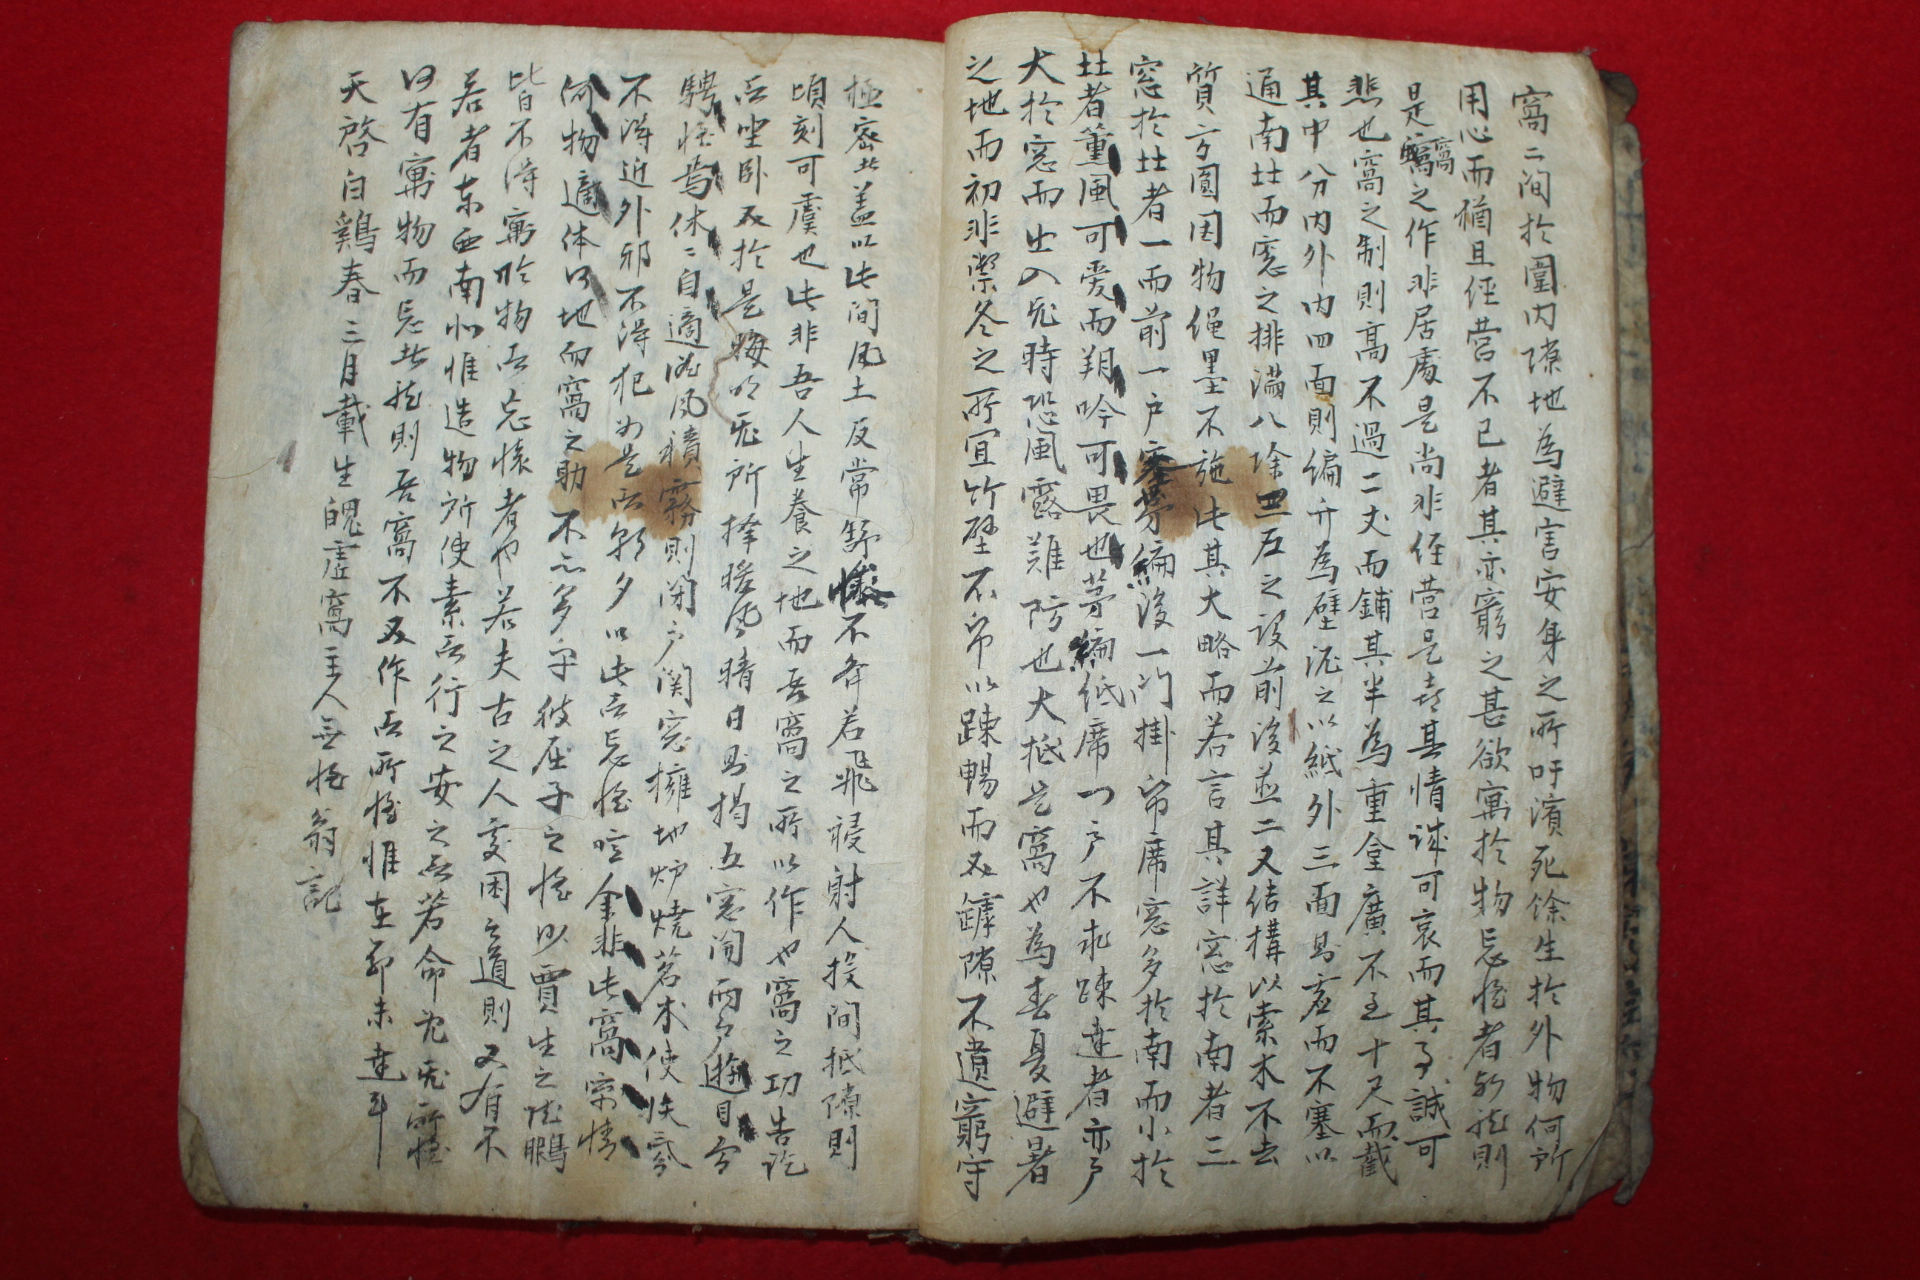 窩二間於園內隙地為避害安身之所吁濱死餘生於外物何所
用心而猶且經營不已者其亦窮之甚欲寓於物忘恠者然則
是窩之作非居處是尚非經營是喜其情誠可哀而其事誠可
悲也窩之制則高不過二丈而鋪其半為重堂廣不至十尺而截
其中分內外內四面則編竹為壁泥之以紙外三面則虛而不塞以
通南北而窓之排滿八除左之設前後並二又結構以索木不去
質方圓因物繩墨不施此其大略而若言其詳窓於南者三
窓於北者一而前一戶後一門掛帘席窓多於南而小於
北者薰風可愛而朔吟可畏也茅編紙席一戶不求疎達者亦戶
大於窓而出入見時恐風露難防也大抵是窩也為春夏避暑
之地而初非禦冬之所宜竹壁不帘以疎暢而又罅隙不遺窮守
極密者盖以此間風土反常舒慘不齊若飛禐射人投間抵隙則
頃刻可虞也此非吾人生養之地而吾窩之所以作也窩之功告訖
吾坐臥於是晦明無所擇暖風晴日則揭五窓開兩戶遊目
騁懷焉休休自適淫風積霧則閉戶関窓擁地炉燒茗木使
不得近外邪不得犯如是吾朝夕以此吾忘恠噫余非此窩寓情
何物適体何地而窩之助不亦多乎彼屈子之恠沙賈生之賦鵬
皆不得寓於物吾忘懷者也若夫古之人處困之道則又有不
若者東西南北惟造物所使素吾行之安之吾若命尤無所恠
何有寓物而忘者然則吾窩不又作吾所恠惟在卯未達耳
天啓白鷄春三月載生魄虛窩主人無恠翁記